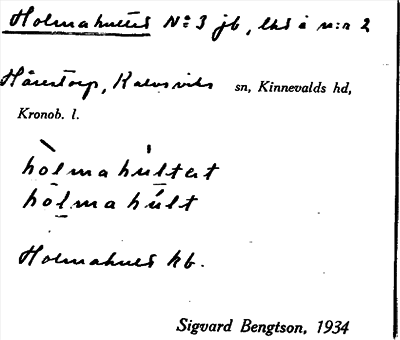 Holmahultet No 3 jb, lht å n:o 2
Hårestorp, Kalvsviks sn, Kinnevalds hd,
Kronob. l.
hòlmahu̇ltet
hòlmahúlt
Holmahult kb.
Sigvard Bengtson, 1934